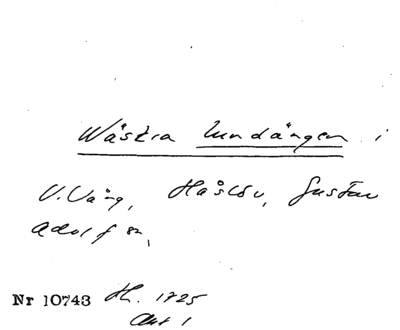 Wästra Lundängen i
V. Vång, Håslöv, Gustav
Adolf sn,
Nr 10743 Hl. 1725
Akt 1